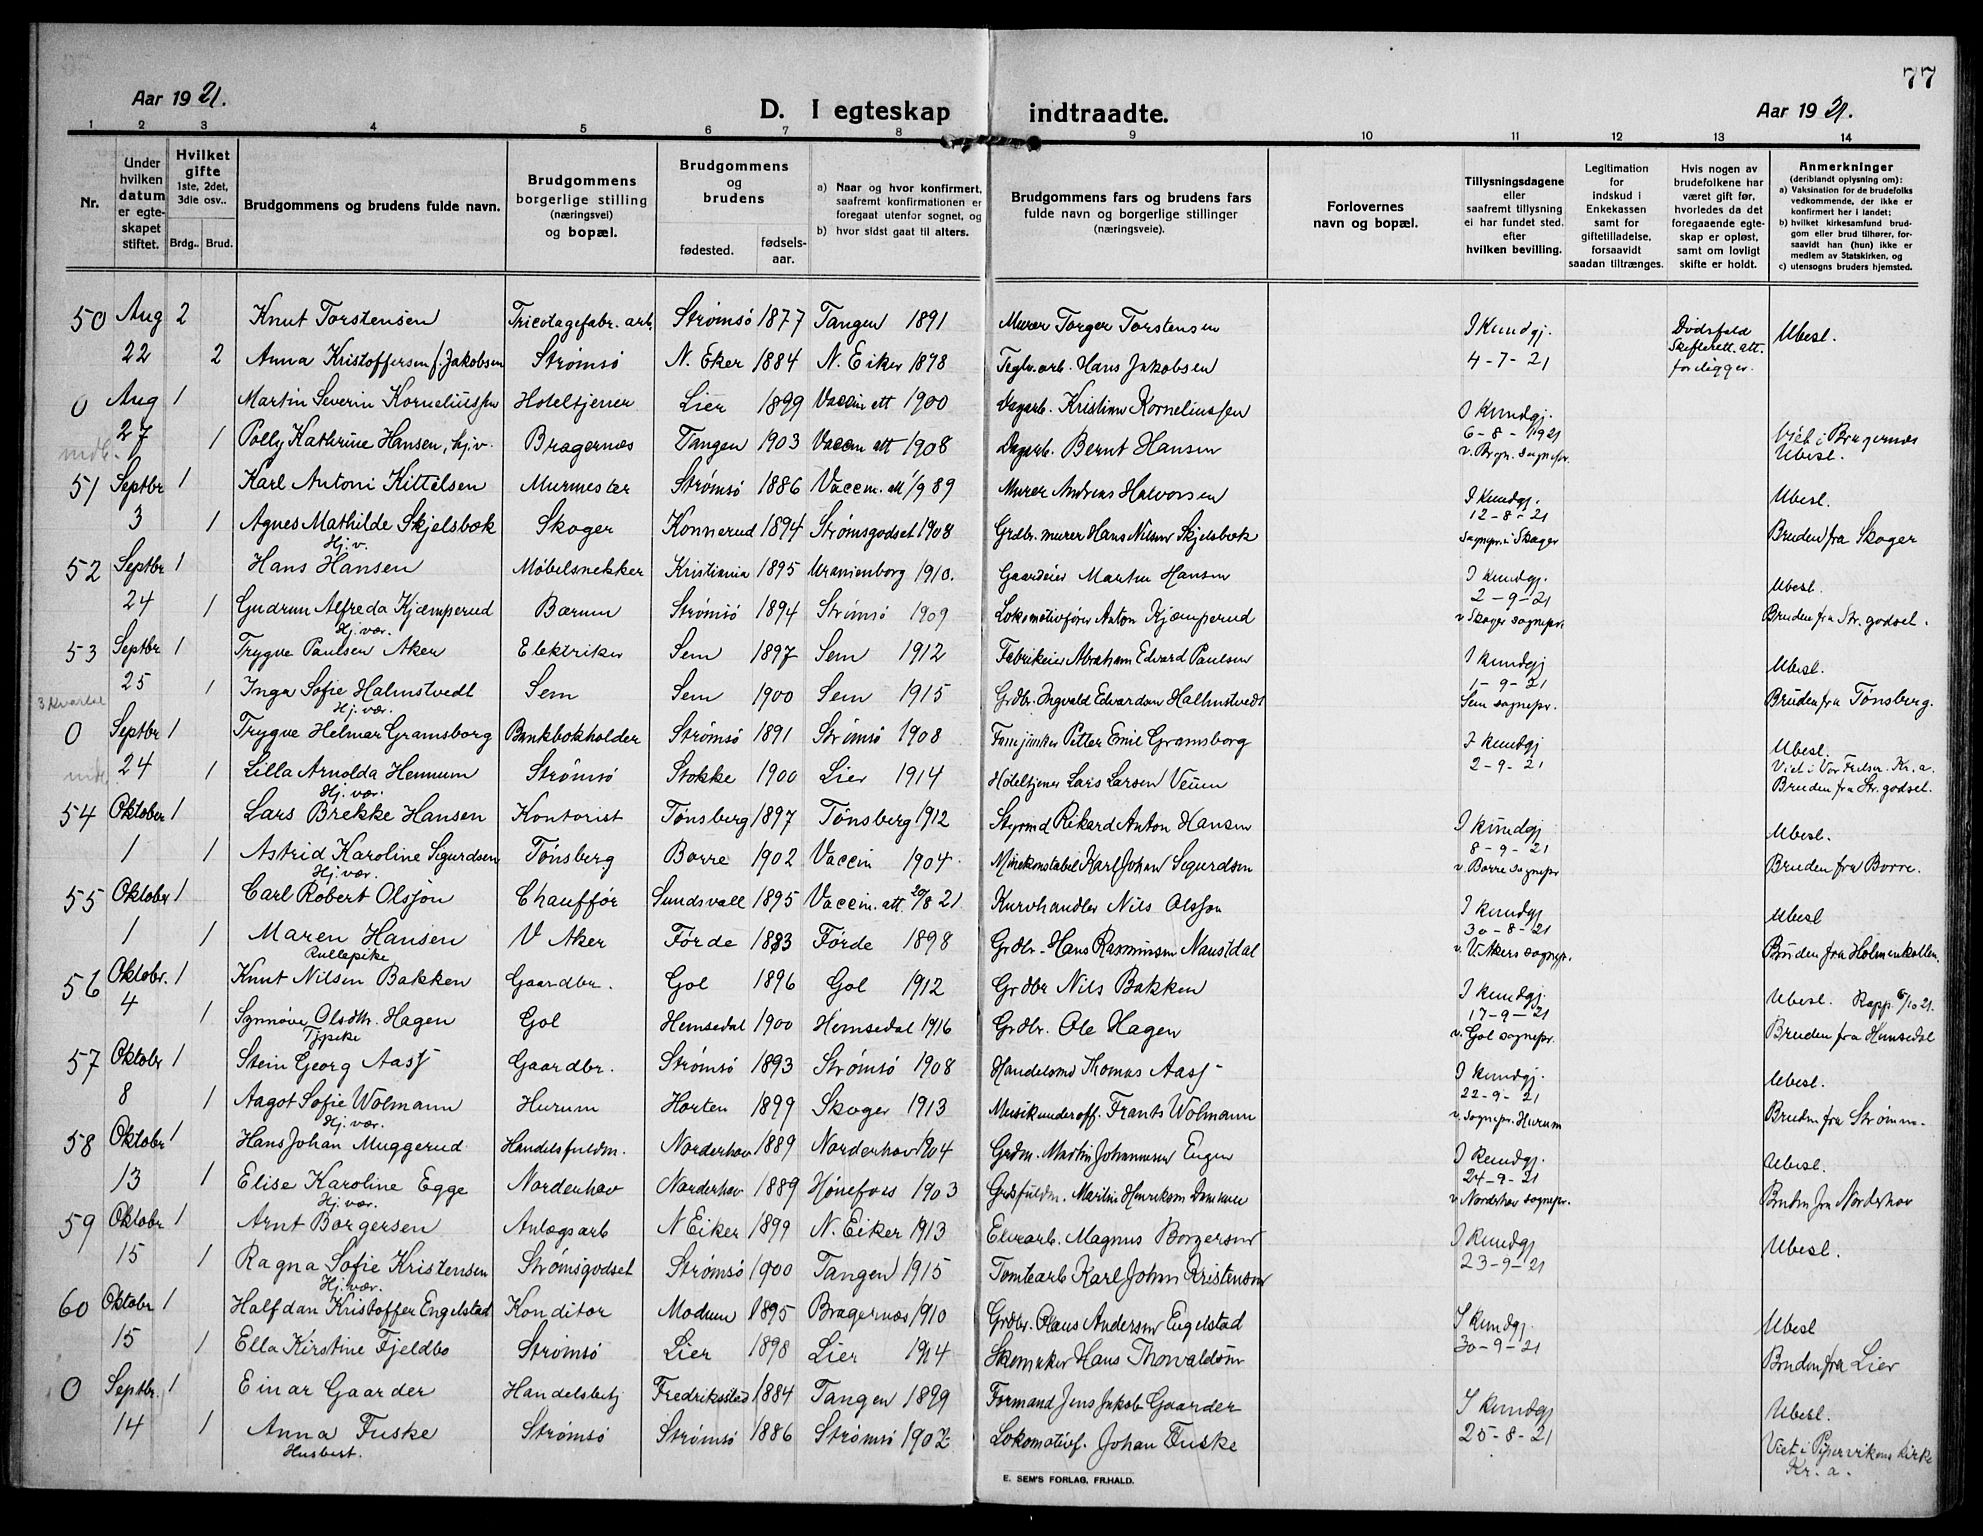 77
Aar 1921.
D. I egteskap indtraadte.
Aar 1921.
1 2 3 4 5 6 7 8 9 10 11 12 13 14
Nr.
Under hvilken datum er egteskapet stiftet.
Hvilket gifte 1ste, 2det, 3die osv..
Brdg.. Brud.
Brudgommens og brudens fulde navn.
Brudgommens borgerlige stilling (næringsvei) og bopæl.
Brudgommens og brudens
fødested. fødselsaar.
a) Naar og hvor konfirmert, saafremt konfirmationen er foregaat utenfor sognet, og
b) hvor sidst gaat til alters.
Brudgommens fars og brudens fars fulde navn og borgerlige stillinger (næringsveie).
Forlovernes navn og bopæl.
Tillysningsdagene eller saafremt tillysning ei har fundet sted. efter hvilken bevilling.
Legitimation for indskud i Enkekassen samt for giftetilladelse, forsaavidt saadan tiltrænges.
Hvis nogen av brudefolkene har været gift før, hvorledes da det foregaaende egteskap er opløst, samt om lovligt skifte er holdt.
Anmerkninger (deriblandt oplysning om):
a) Vaksination for de brudefolks vedkommende, der ikke er konfirmert her i landet;
b) hvilket kirkesamfund brudgom eller brud tilhører, forsaavidt han (hun) ikke er medlem av Statskirken, og
c) utensogns bruders hjemsted.
50 Aug 2 Knut Torstensen Tricotagefabr. arb. Strømsø 1877 Tangen 1891 Murer Torger Torstensen I Kundgj. Dødsfald Skifterett. att. foreligger. Ubesl.
22 2 Anna Kristoffersen f. Jakobsen Strømsø N. Eker 1884 N. Eiker 1898 Teglv.arb. Hans Jakobsen 4-7-21
0 Aug 1 Martin Severin Korneliussen Hoteltjener Lier 1899 Vaccin att 1900 Dagarb. Kristian Korneliussen I Kundgj. 6-8-1921
27 1 Polly Kathrine Hansen, hj.v. Bragernes Tangen 1903 Vaccin att 1908 Dagarb. Bernt Hansen v. Brgn. sognepr. Viet i Bragernæs Ubesl.
51 Septbr 1 Karl Antoni Kittelsen Murmester Strømsø 1886 Vaccin. att 1/9 89 Murer Andreas Halvorsen I Kundgj. 12-8-21 Ubesl.
3 1 Agnes Mathilde Skjelsbæk Skoger Konnerud 1894 Strømsgodset 1908 Grdbr. murer Hans Nilsen Skjelsbæk Sognepr. i Skoger Bruden fra Skoger
Hj.v.
52 Septbr 1 Hans Hansen Møbelsnekker Kristiania 1895 Uranienborg 1910. Gaardeier Martin Hansen I Kundgj. 2-9-21 Ubesl.
24 1 Gudrun Alfreda Kjæmperud Bærum Strømsø 1894 Strømsø 1909 Lokomotivfører Anton Kjæmperud v Skoger sognepr. Bruden fra Str. godset.
Hj. vær.
53 Septbr 1 Trygve Paulsen Aker Elektriker Sem 1897 Sem 1912 Fabrikeier Abraham Edvard Paulsen I Kundgj 1-9-21 Ubesl.
25 1 Inga Sofie Halmstvedt Sem Sem 1900 Sem 1915 Grdbr. Ingvald Edvardsen Halmstvedt Sem sognepr. Bruden fra Tønsberg.
3 kvartal
Hj. vær.
0 Septbr 1 Trygve Helmar Gramsborg Bankbokholder Strømsø 1891 Strømsø 1908 Fanejunker Petter Emil Gramsborg I Kundgj 2-9-21 Ubesl.
24 1 Lilla Arnolda Hennum Strømsø Stokke 1900 Lier 1914 Hoteltjener Lars Larsen Veum Viet i Vor Frelser. Kr.a. Bruden fra Str. godset.
Hj. vær.
54 Oktober 1 Lars Brekke Hansen Kontorist Tønsberg 1897 Tønsberg 1912 Styrmd Rikard Anton Hansen I Kundgj 8-9-21 Ubesl.
1 1 Astrid Karoline Sigurdsen Tønsberg Borre 1902 Vaccin 1904. Minekonstabel Karl Johan Sigurdsen v. Borre sognepr Bruden fra Borre.
Hj. vær.
55 Oktober 1 Carl Robert Olsson Chauffør Sundsvall 1895 Vaccin. att. 20/8 21 Kurvhandler Nils Olsson I Kundgj 30-8-21 Ubesl
1 1 Maren Hansen V Aker Førde 1883 Førde 1898 Grdbr. Hans Rasmussen Naustdal v. V. Akers sognepr. Bruden fra Holmenkollen.
Rullepike
56 Oktobr. 1 Knut Nilsen Bakken Gaardbr. Gol 1896 Gol 1912 Grdbr Nils Bakken I Kundgj. 17-9-21 Ubesl. Rapp. 6/10 21.
4 1 Synnøve Olsdtr. Hagen Gol Hemsedal 1900 Hemsedal 1916 Grdbr. Ole Hagen v. Gol sognepr. Bruden fra Hemsedal
Tjpike
57 Oktobr 1 Stein Georg Aass Gaardbr. Strømsø 1893 Strømsø 1908 Handelsmd Thomas Aass I Kundgj. 22-9-21 Ubesl.
8 1 Aagot Sofie Wolmann Hurum Horten 1899 Skoger 1913 Musikunderoff. Frants Wolmann v. sognepr. Hurum Bruden fra Strømm.
Hj. vær.
58 Oktobr 1 Hans Johan Muggerud Handelsfuldm. Norderhov 1889 Norderhov 1904 Grdm. Martin Johannesen Engen I Kundgj. 24-9-21 Ubesl.
13 1 Elise Karoline Egge Norderhov Norderhov 1889 Hønefoss 1903 v Norderhov sognepr. Bruden fra Norderhov
Hj. vær.
59 Oktobr 1 Arnt Borgersen Anlægsarb N Eiker 1899 N. Eiker 1913 Elvearb. Magnus Borgersen I Kundgj 23-9-21 Ubesl.
15 1 Ragna Sofie Kristensen Strømsgodset Strømsø 1900 Tangen 1915 Tomtearb Karl Johan Kristensen
Hj. vær.
60 Oktobr 1 Halfdan Kristoffer Engelstad Konditor Modum 1895 Bragernæs 1910 Grdbr. Claus Andersen Engelstad I Kundgj. 30-9-21 Ubesl
15 1 Ella Kirstine Fjeldbo Strømsø Lier 1898 Lier 1914 Skomaker Hans Thorvaldsen Bruden fra Lier
0 Septbr. 1 Einar Gaarder Handelsbetj Fredrikstad 1884 Tangen 1899 Formand Jens Jakob Gaarder I Kundgj 25-8-21 Ubesl.
14 1 Anna Fuske Strømsø Strømsø 1886 Strømsø 1902 Lokomotivf. Johan Fuske Viet i Pipervikens kirke Kr.a.
Husbest.
E. SEM'S FORLAG, FR.HALD.